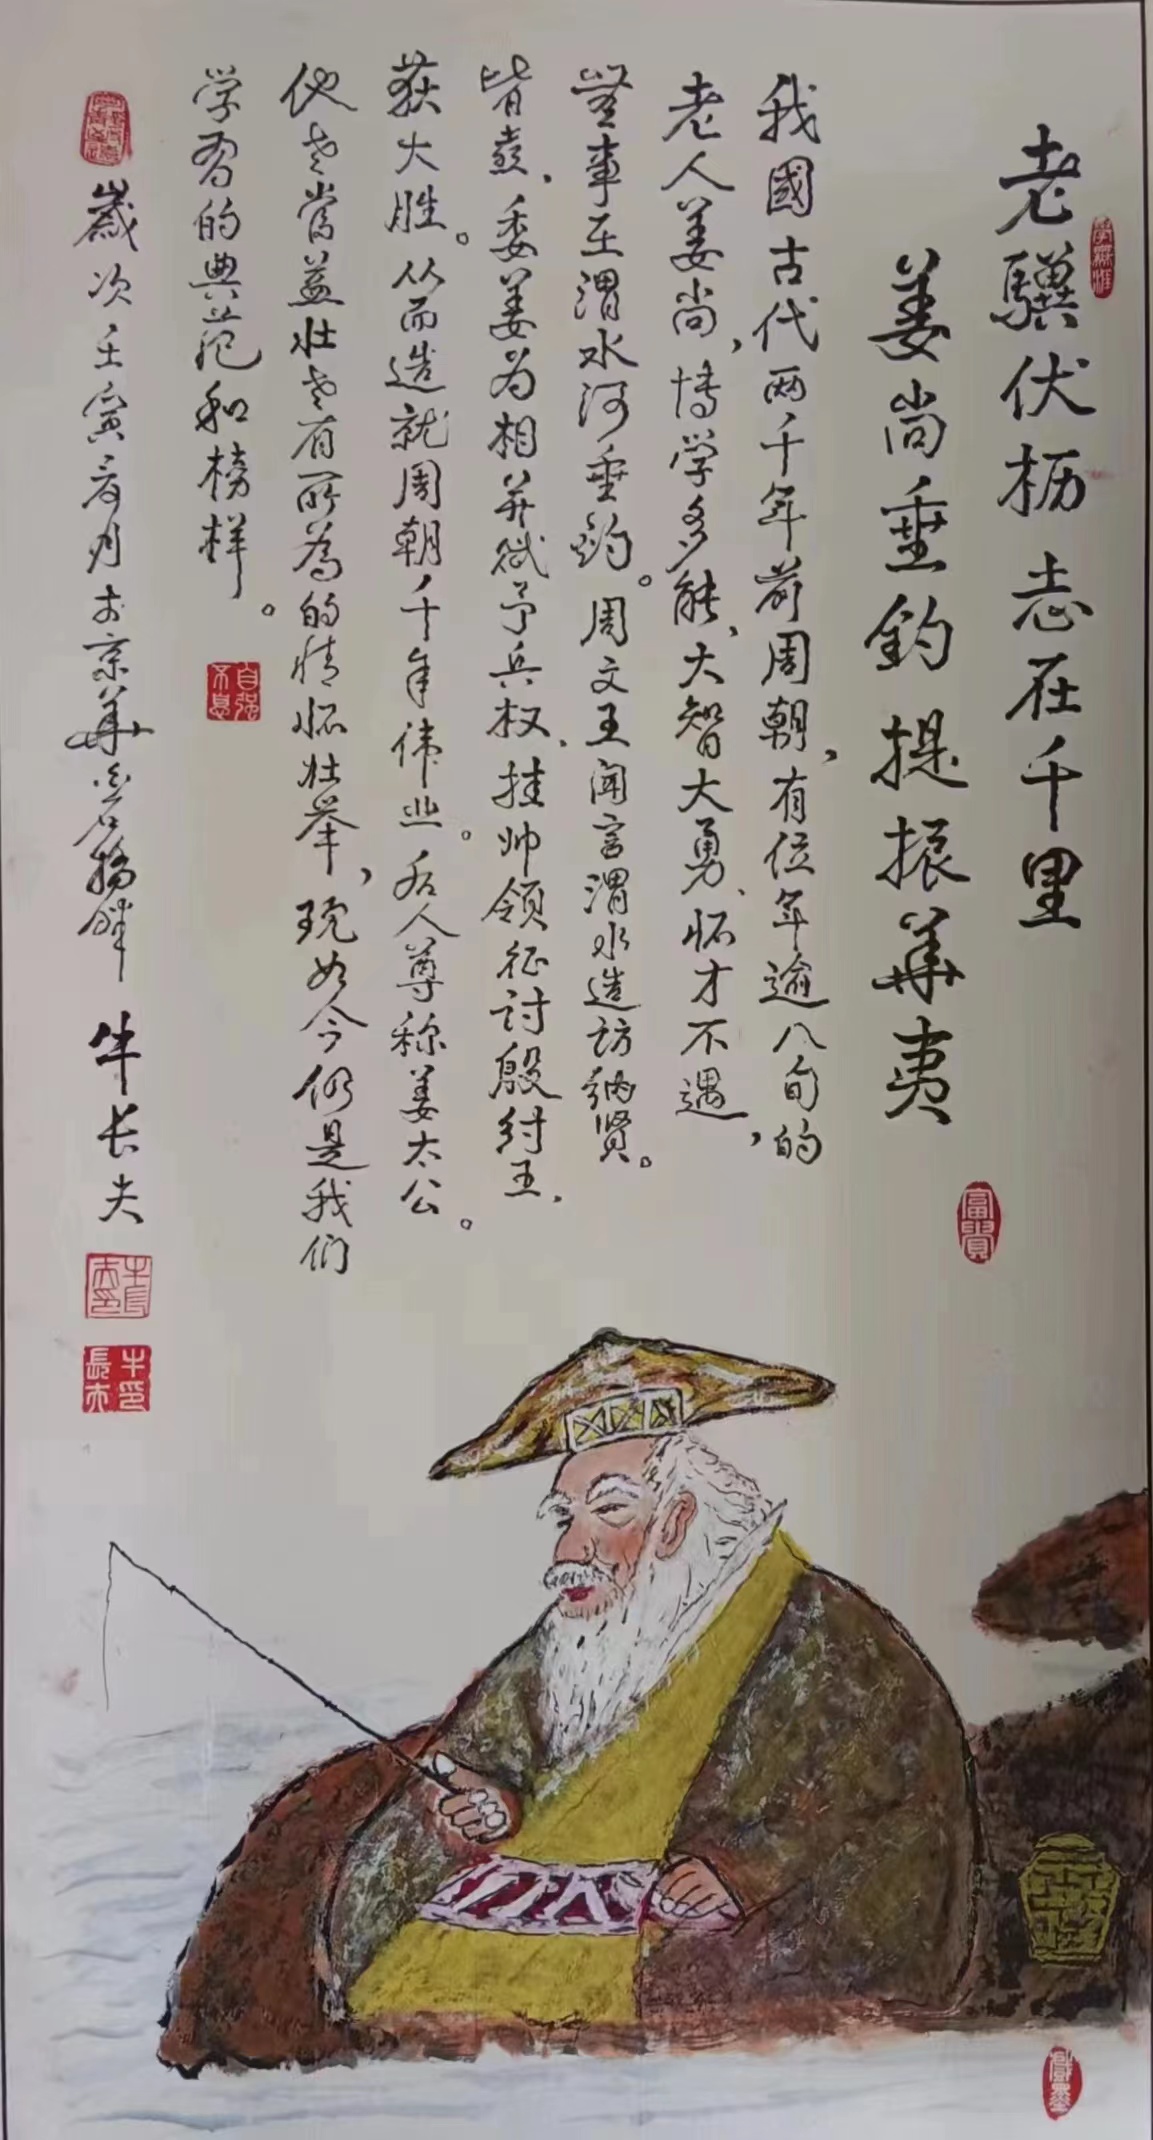 老骥伏枥 志在千里
姜尚垂钓 提振华夷
我國古代两千年前周朝,有位年逾八旬的
老人姜尚,博学多能、大智大勇、怀才不遇,
無事至渭水河垂钓。周文王闻言渭水造访纳贤。
皆意、委姜为相并赋予兵权、挂帅领征討殷纣王、
获大胜。从而造就周朝千年伟业。后人尊称姜太公。
他老當益壮老有所為的情怀壮举,现如今仍是我们
学习的典范和榜样。
自强不息
歲次壬寅 月于京華 牛长夫
富貴
牛長夫印